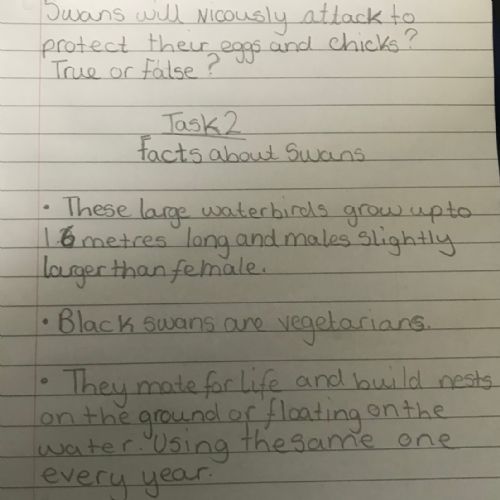 Swans will viciously attack to
protect their eggs and chicks?
True or false?
Task 2
facts about Swans
• These large waterbirds grow up to
1.6 metres long and males slightly
larger than female.
• Black swans are vegetarians.
• They mate for life and build nests
on the ground or floating on the
water. Using the same one
every year.